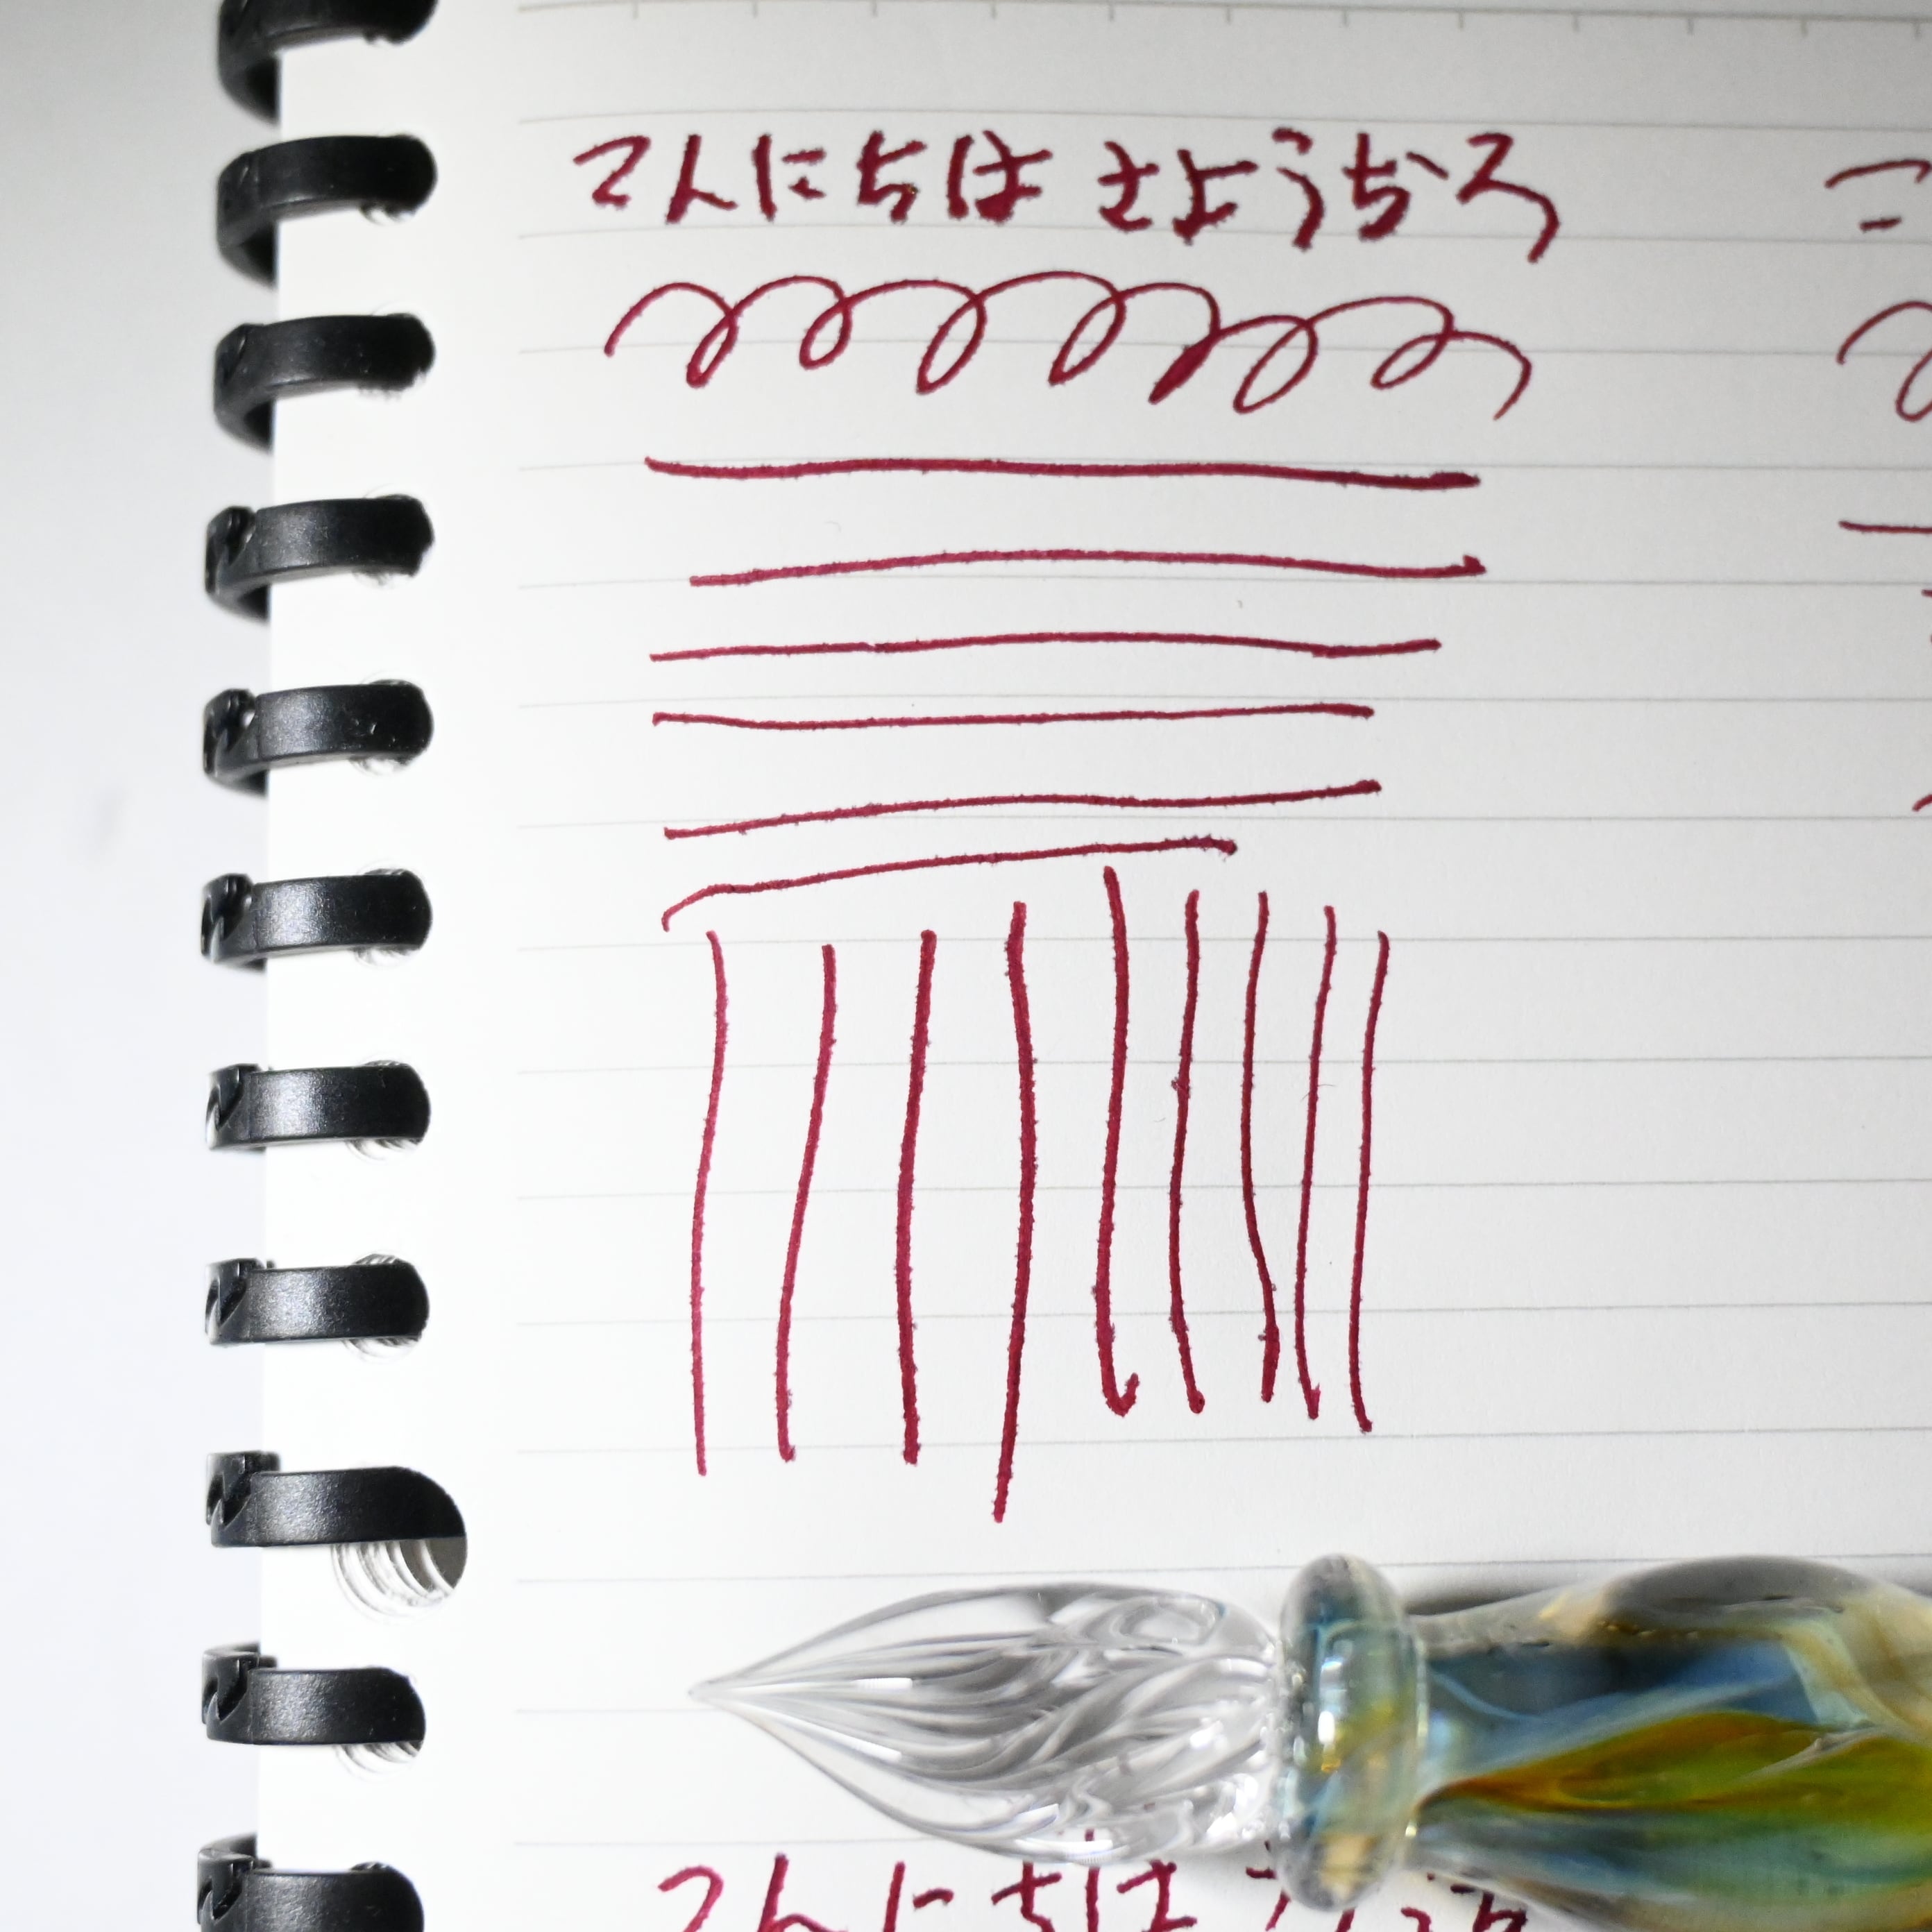 こんにちは さようなら
こんにちは